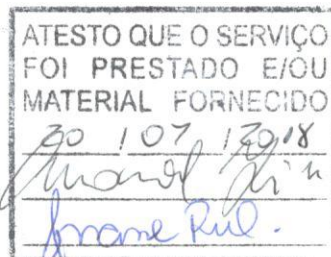 ATESTO QUE O SERVIÇO
FOI PRESTADO E/OU
MATERIAL FORNECIDO
30 / 07 / 2018